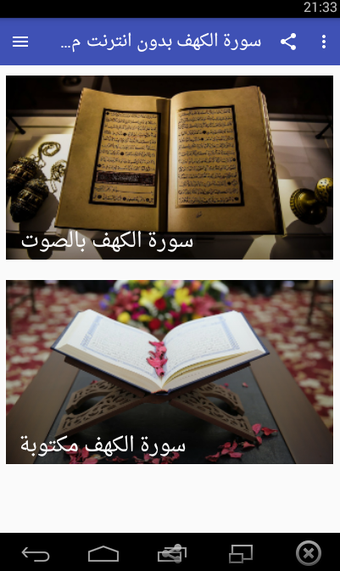 21:33
سورة الكهف بدون انترنت م...
سورة الكهف بالصوت
سورة الكهف مكتوبة